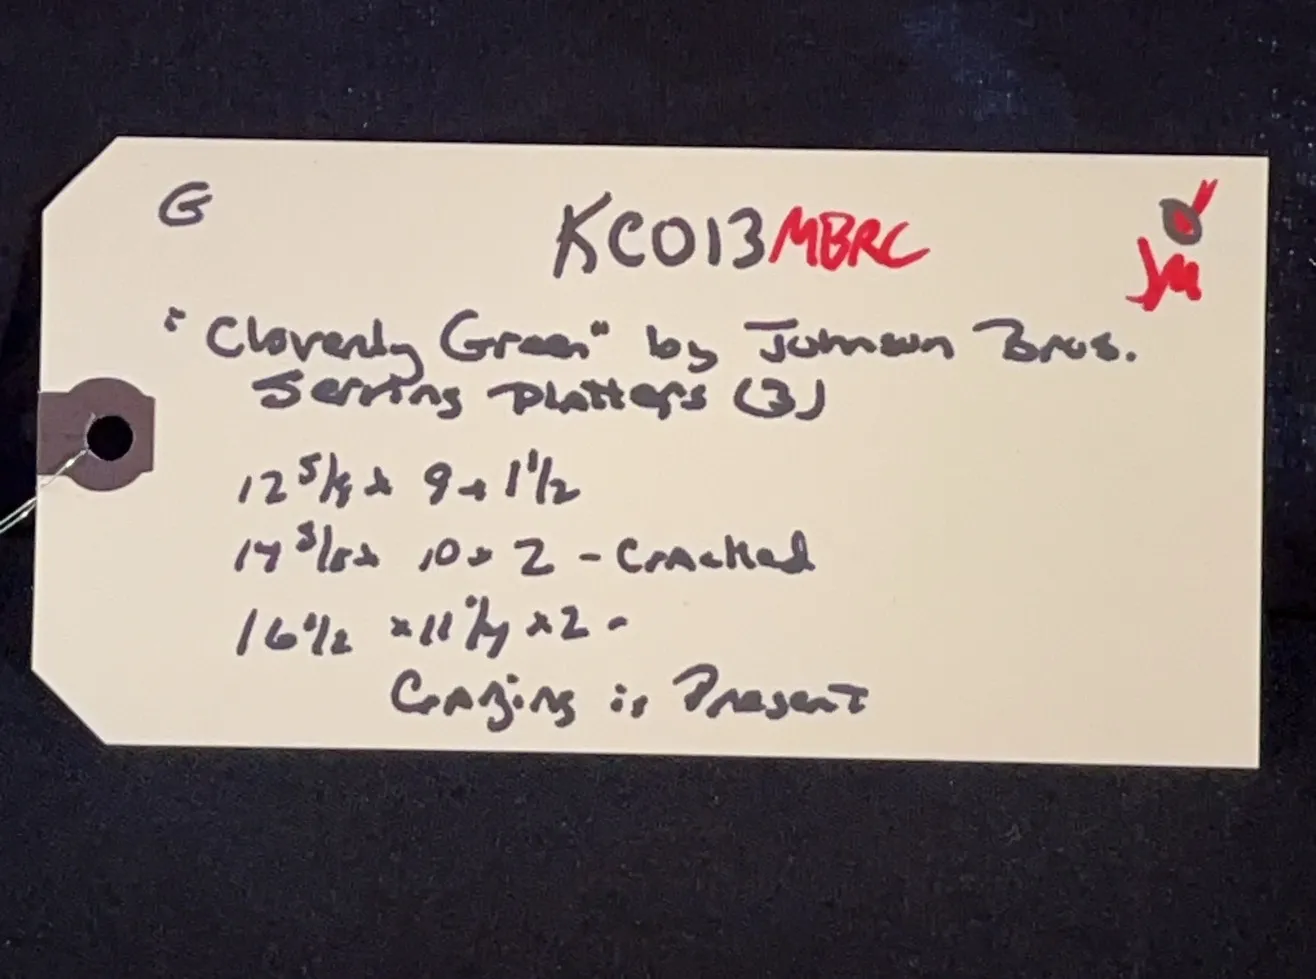 G
KC013MBRC
JM
"Cloverly Green" by Johnson Bros.
Serving Platters (3)
12 5/8 x 9 x 1 1/2
14 5/8 x 10 x 2 - Cracked
16 1/2 x 11 1/4 x 2 -
Crazing is Present